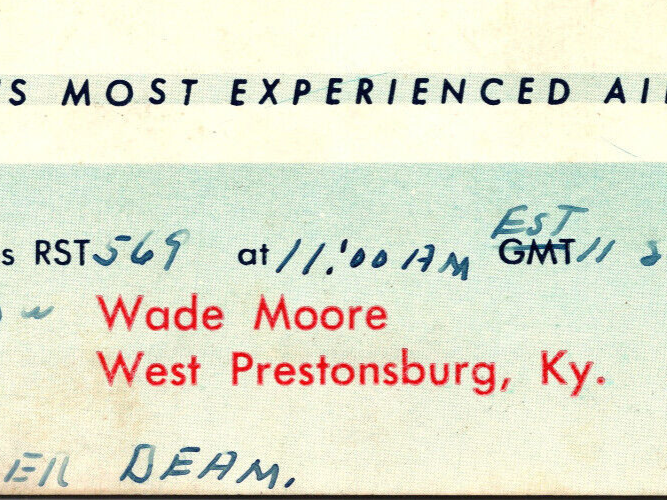 'S MOST EXPERIENCED AI
s RST 569 at 11:00 AM GMT EST 11
Wade Moore
West Prestonsburg, Ky.
ER BEAM.